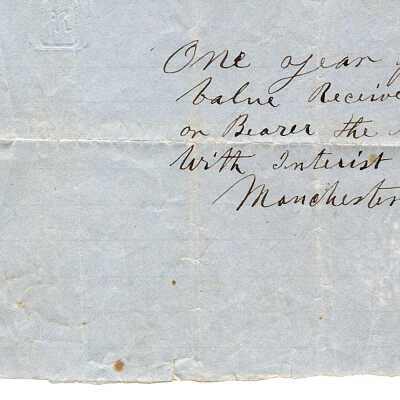 One year
Value Receive
or Bearer the
With Interist
Manchester